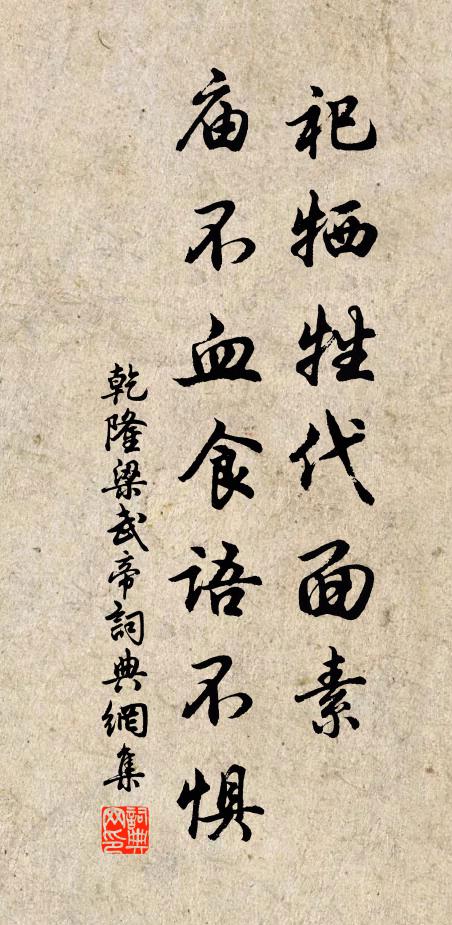 祀牺牲代面素
庙不血食语不惧
乾隆梁武帝詞典網集
詞典网印